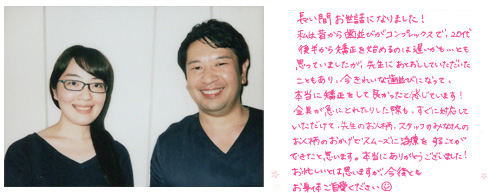 長い間お世話になりました!
私は昔から歯並びがコンプレックスで、20代
後半から矯正を始めるのは遅いかも…とも
思っていましたが、先生にあとおししていただいた
こともあり、今きれいな歯並びになって、
本当に矯正をして良かったと感じています!
金具が急にとれたりした際も、すぐに対応して
いただけて、先生のお人柄、スタッフのみなさんの
お人柄のおかげでスムーズに治療をすることが
できたと思います。本当にありがとうございました!
お忙しいとは思いますが、今後とも
お身体ご自愛ください